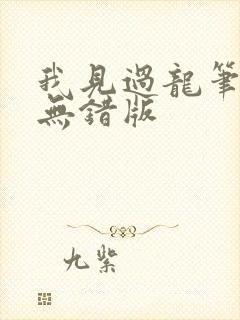 我見過龍筆
無錯版
九紫